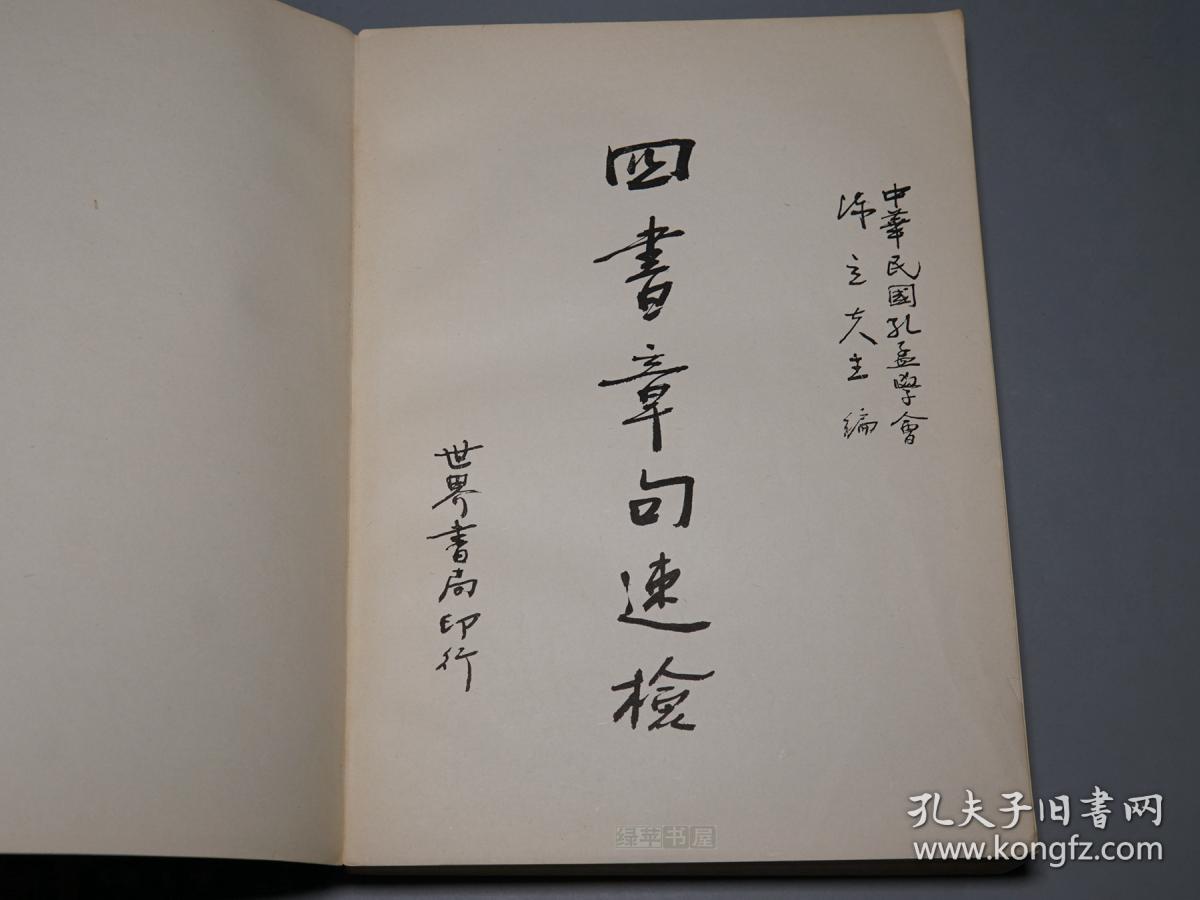 中華民國孔孟學會
陳立夫主編
四書章句速檢
世界書局印行
绿苹书屋
孔夫子旧书网
www.kongfz.com